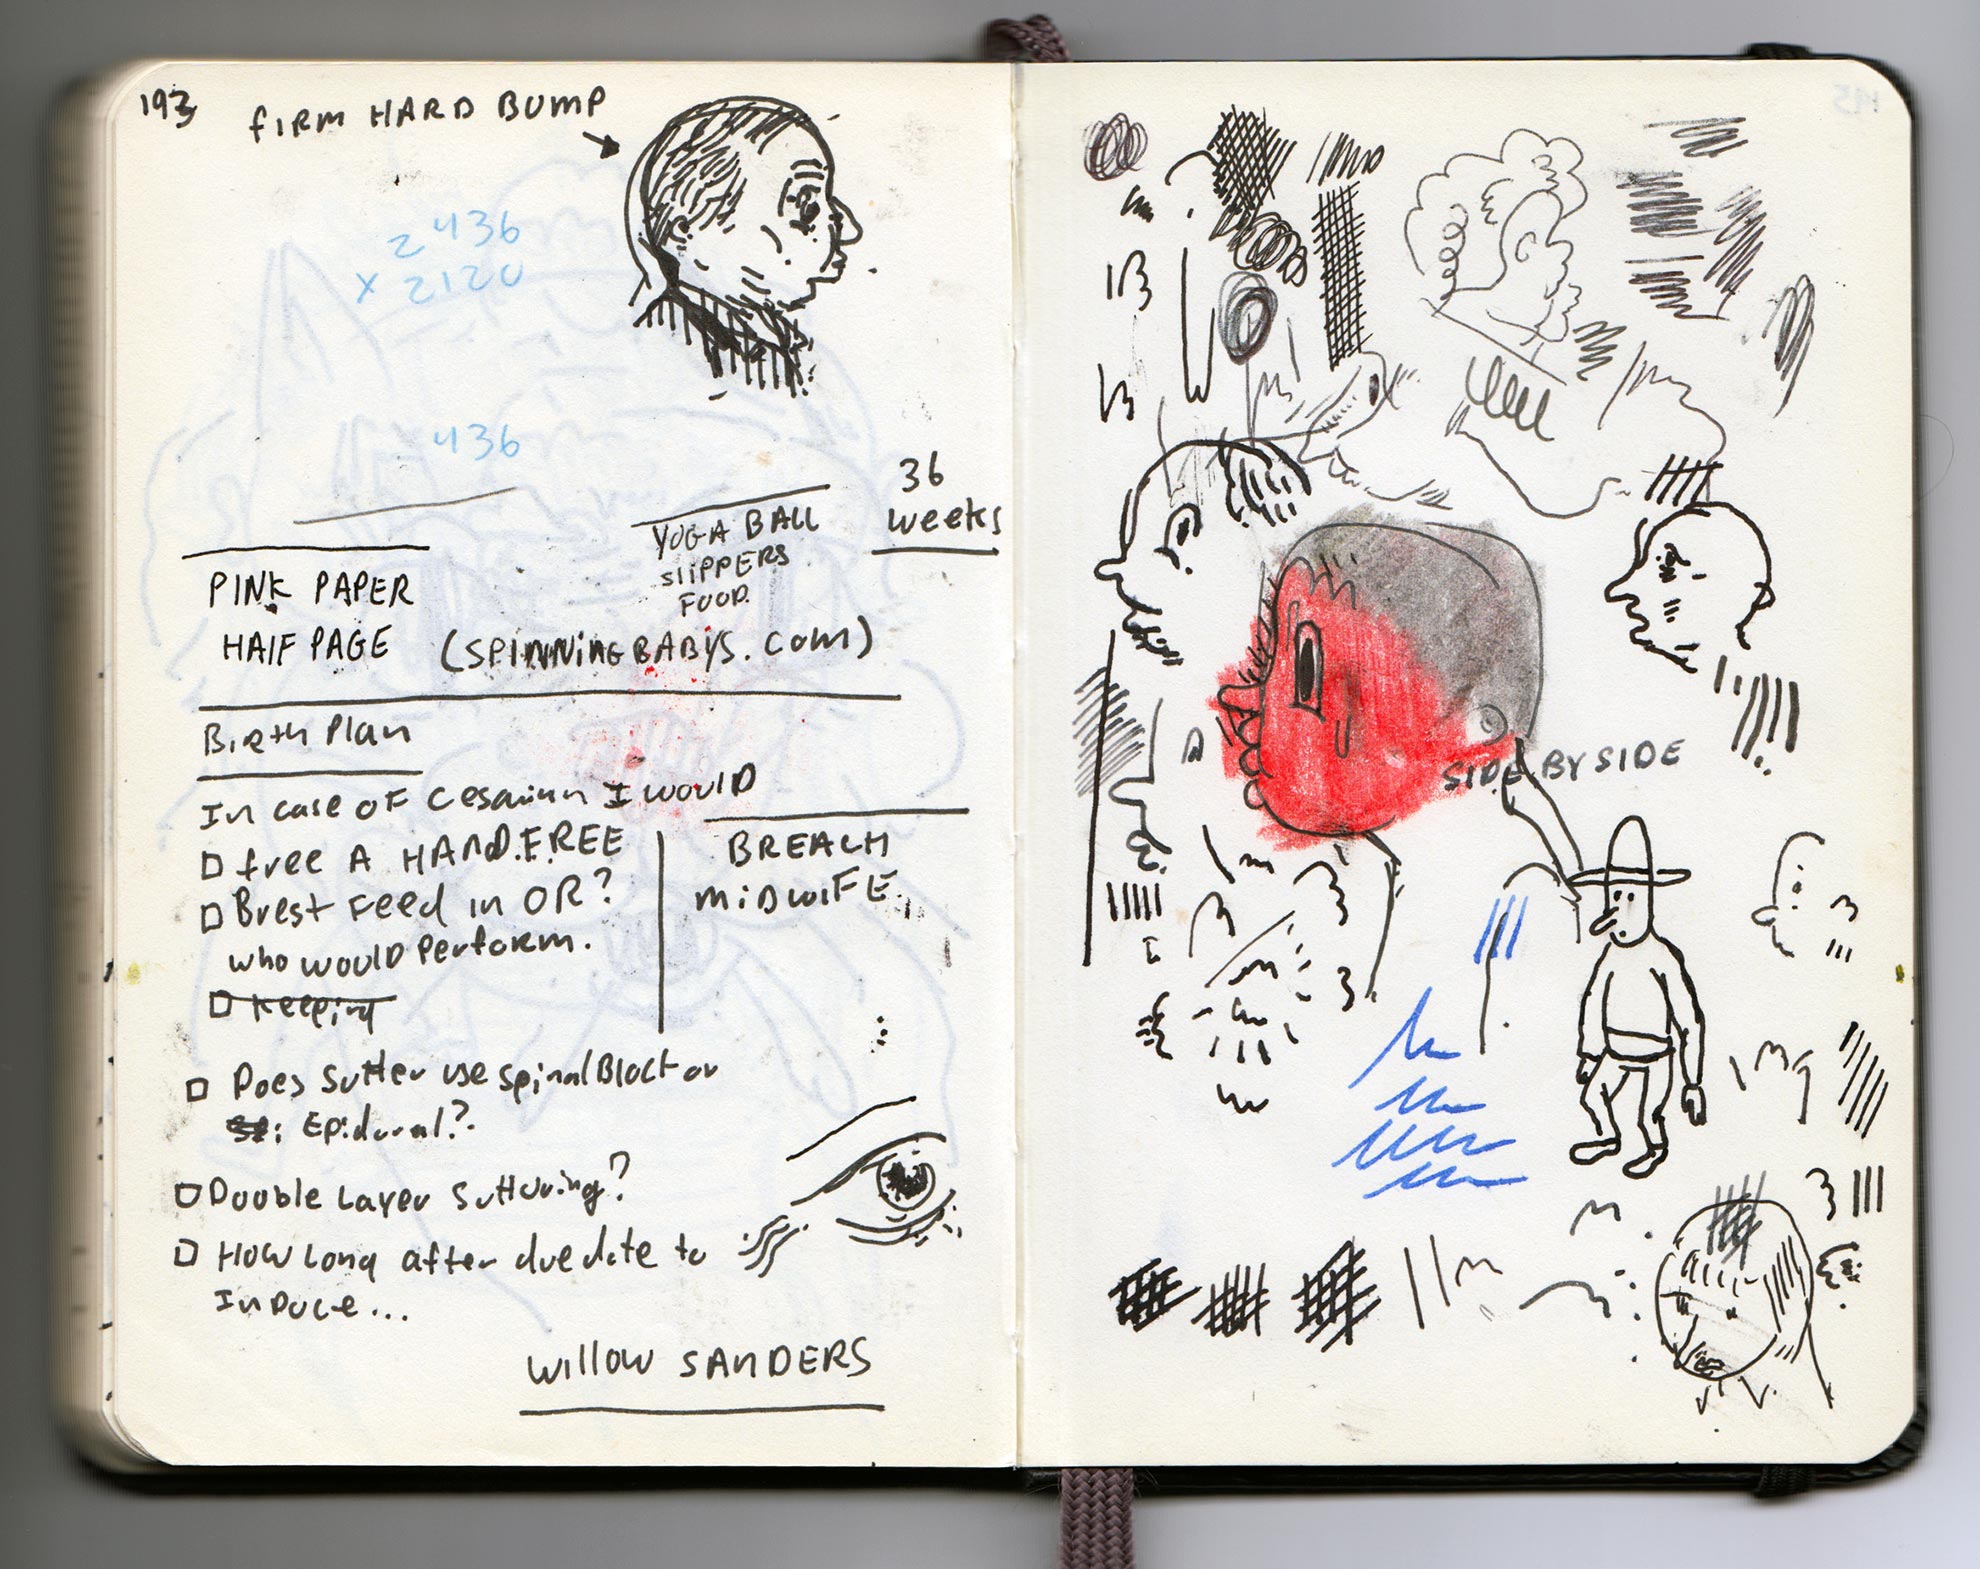 193
fIRM HARD BUMP
2436
x 2120
436
36
weeks
YOGA BALL
SLIPPERS
FOOD.
PINK PAPER
HAlF PAGE
(SPINNiNGBABYS.COM)
Birth Plan
In case of Cesarian I WOULD
free A HAND.F.REE
Brest Feed in OR?
who would Perform.
Keeping
BREACH
MiDWiFE
Does Sutter use spinal Block or
Epidural?
Double Layer Suturing?
How Long after due date to
Induce...
WillOW SANDERS
SIDE BY SIDE